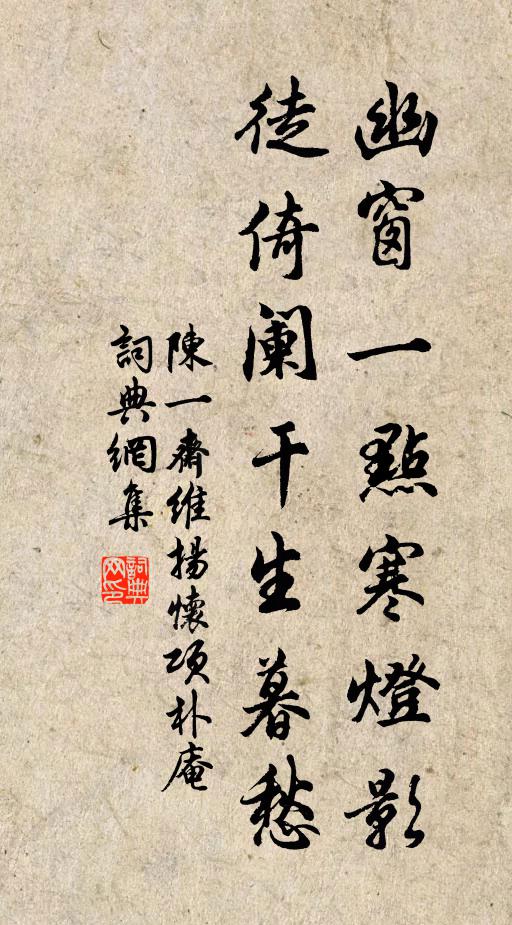 幽窗一點寒燈影
徒倚闌干生暮愁
陳一齋維揚懷項朴庵
詞典網集
詞典網印